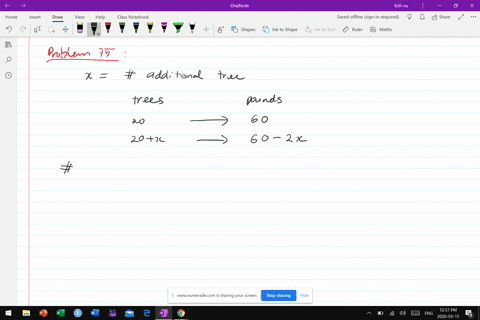 OneNote
Saved offline (sign in required)
File Home Insert Draw View Help Class Notebook
Shapes Ink to Shape Ink to Text Ruler Maths
Problem 75 :
x = # additional tree
trees pounds
20 → 60
20+x → 60-2x
#
www.numerade.com is sharing your screen. Stop sharing Hide
12:57 PM
ENG
2020-09-15